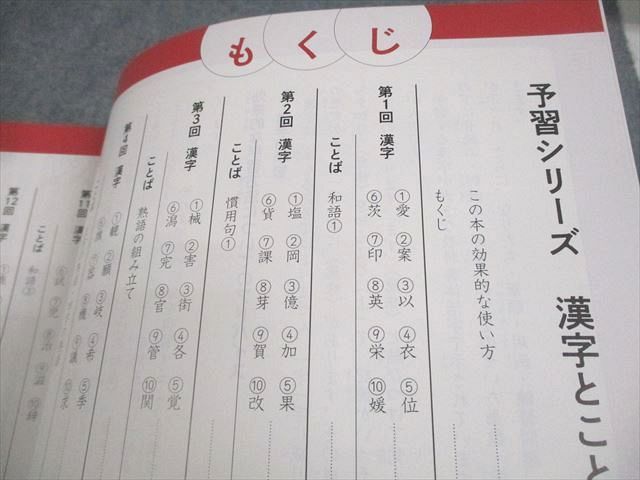 もくじ
予習シリーズ 漢字とこと
この本の効果的な使い方
もくじ
第1回 漢字 ①愛 ②案 ③以 ④衣 ⑤位
⑥茨 ⑦印 ⑧英 ⑨栄 ⑩媛
ことば 和語①
第2回 漢字 ①塩 ②岡 ③億 ④加 ⑤果
⑥貨 ⑦課 ⑧芽 ⑨賀 ⑩改
ことば 慣用句①
第3回 漢字 ①械 ②害 ③街 ④各 ⑤覚
⑥潟 ⑦完 ⑧官 ⑨管 ⑩関
ことば 熟語の組み立て
第4回 漢字 ①観 ②願 ③岐 ④希 ⑤季
第11回
第12回 漢字
ことば 和語②